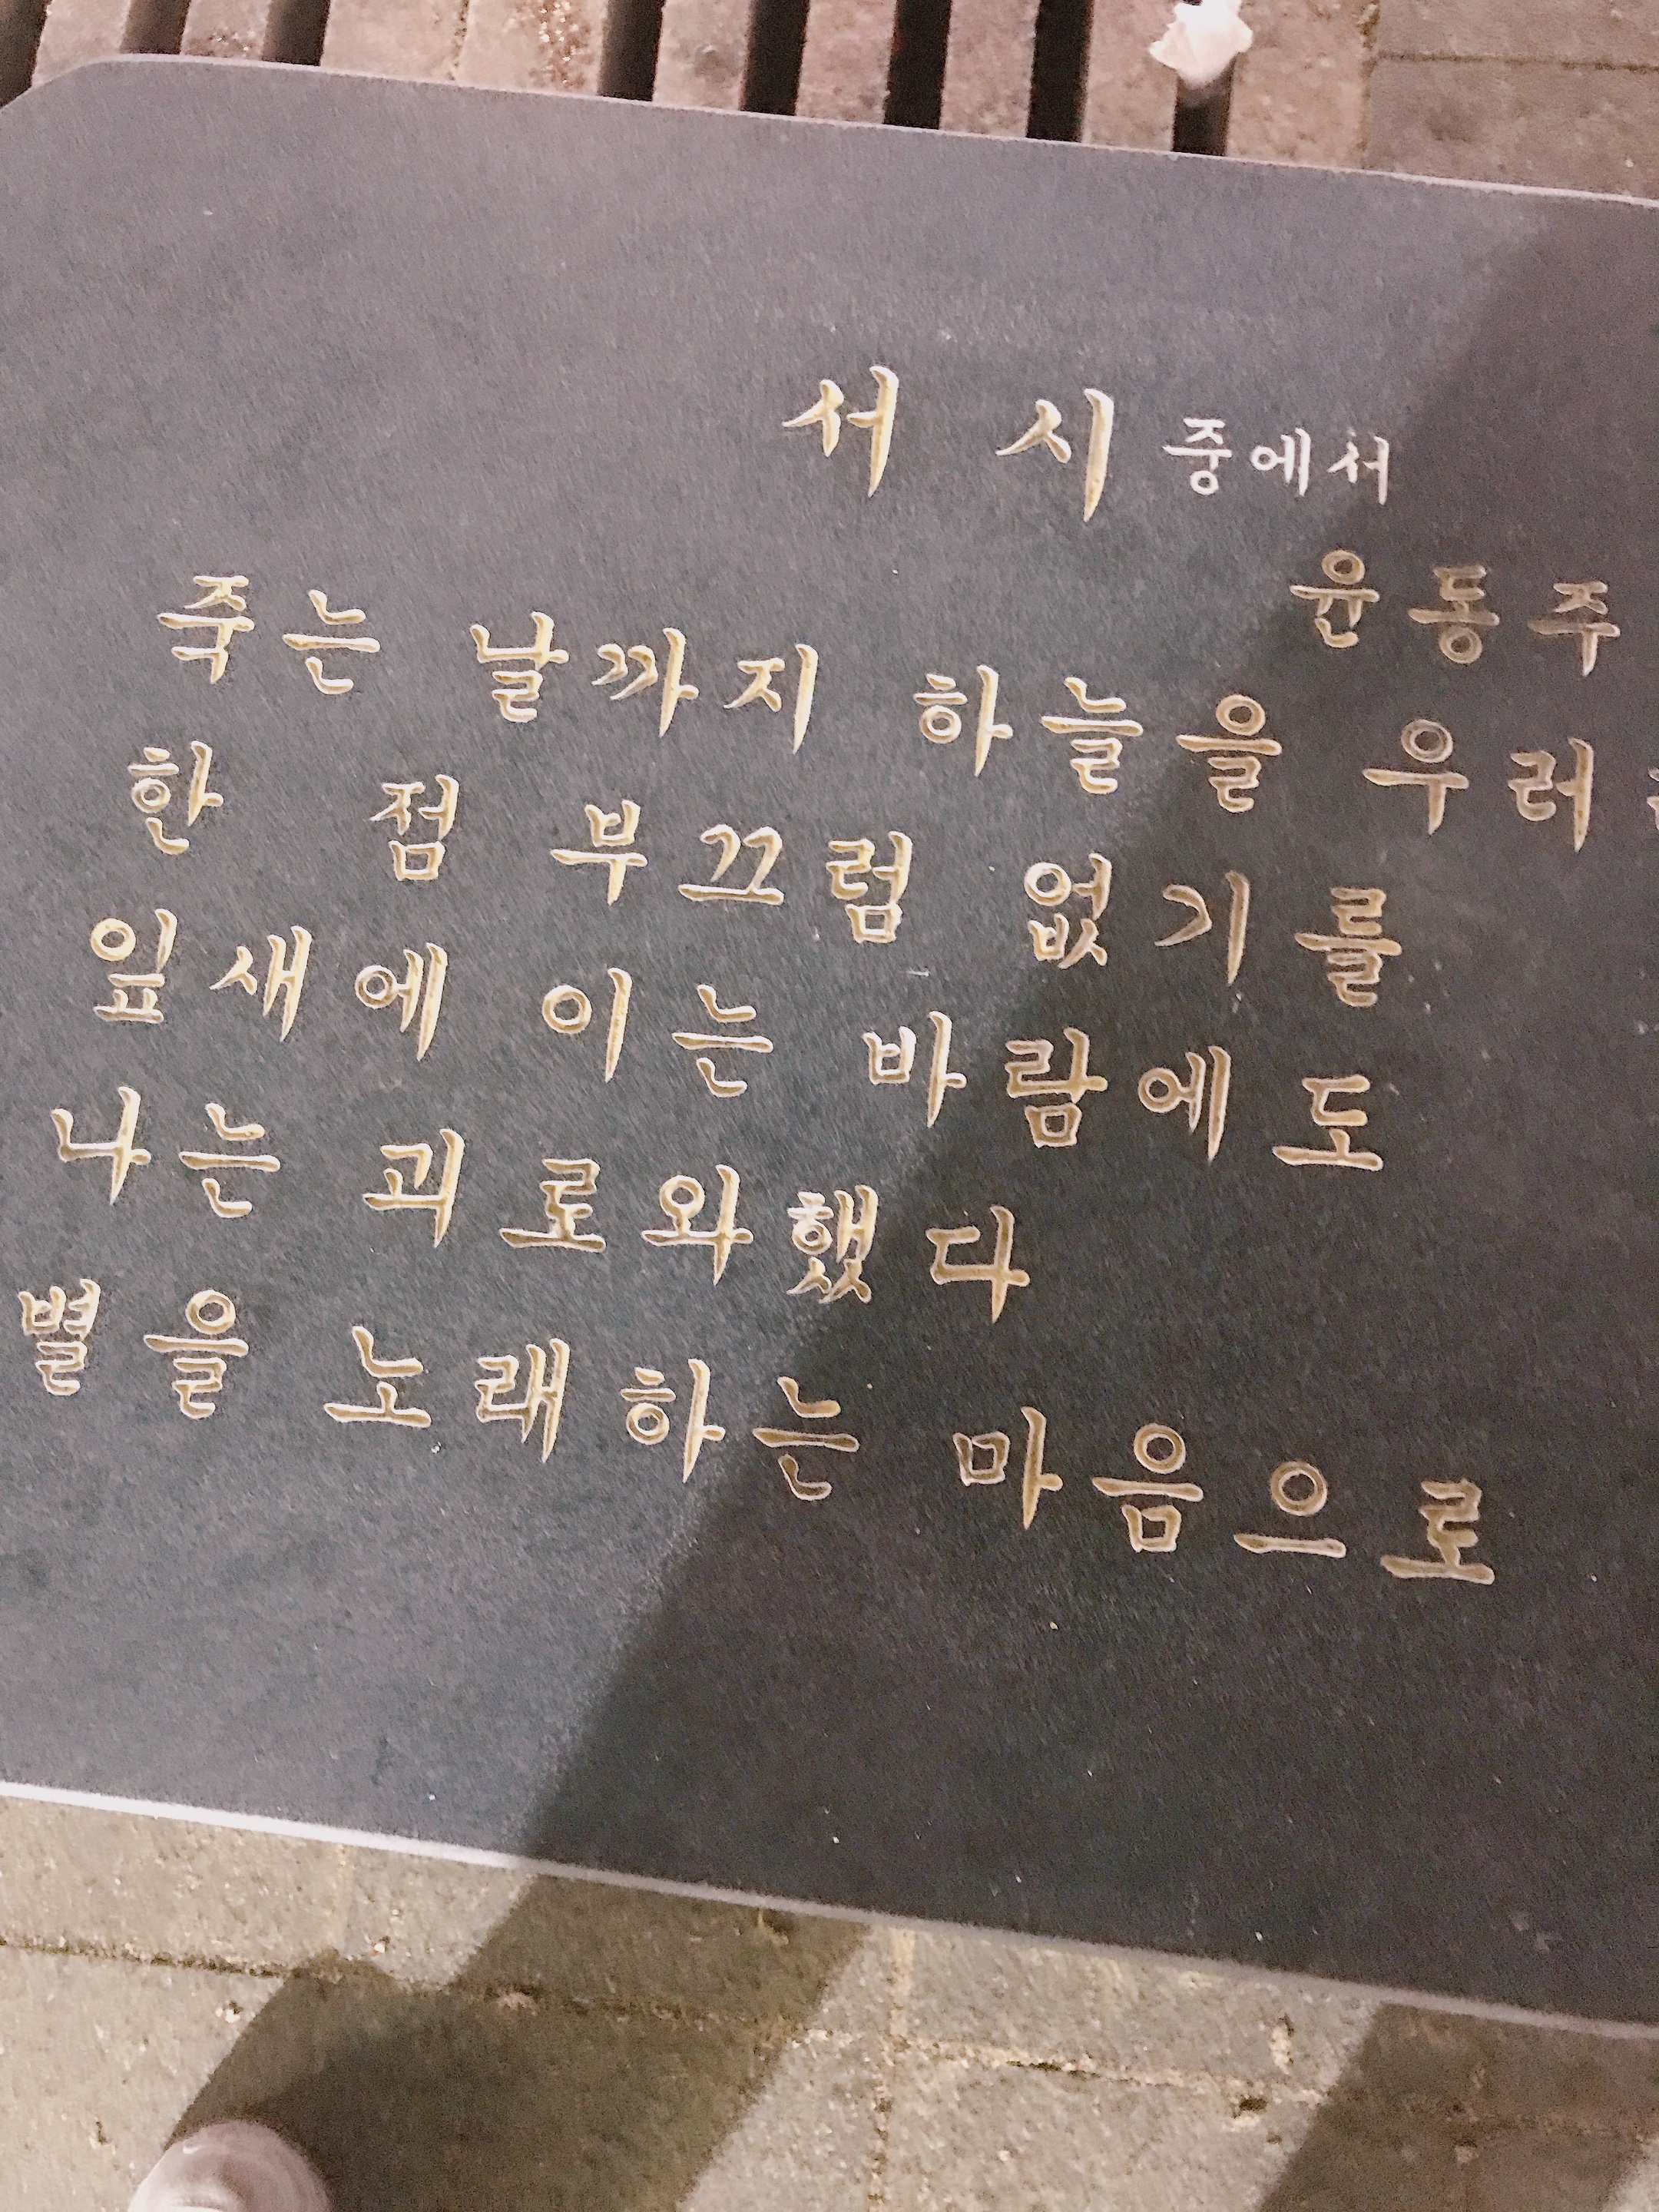 서 시 중에서
윤동주
죽는 날까지 하늘을 우러
한 점 부끄럼 없기를
잎새에 이는 바람에도
나는 괴로와했다
별을 노래하는 마음으로